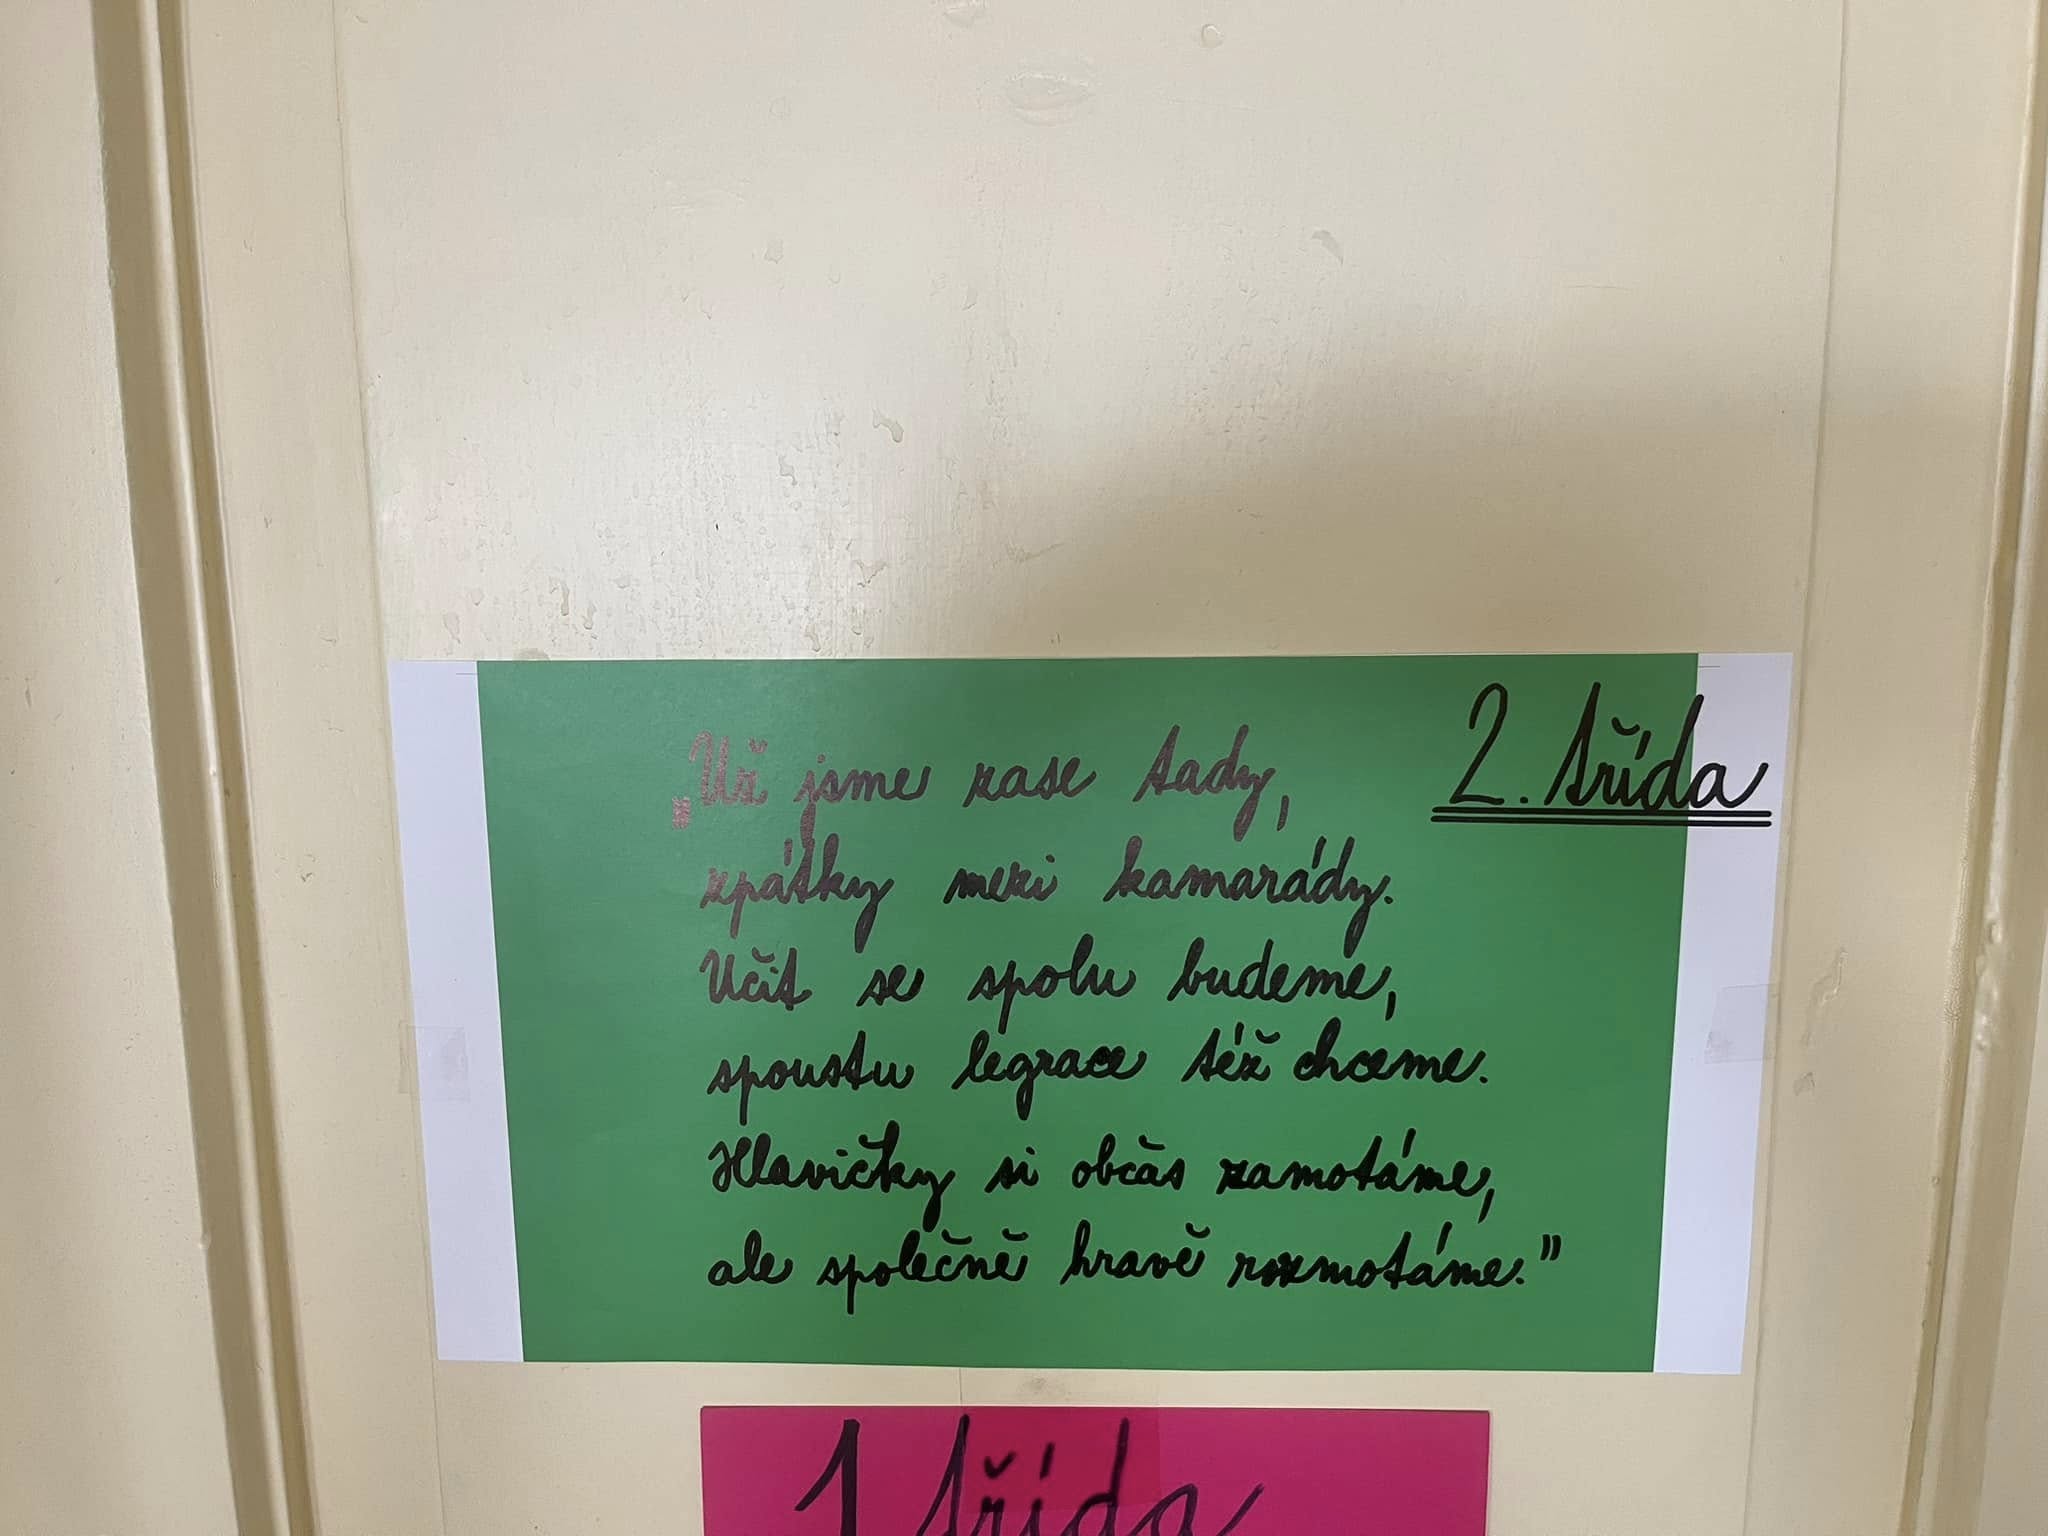 2. třída
„Už jsme zase tady,
zpátky mezi kamarády.
Učit se spolu budeme,
spoustu legrace též chceme.
Hlavičky si občas zamotáme,
ale společně hravě rozmotáme."
1 třída